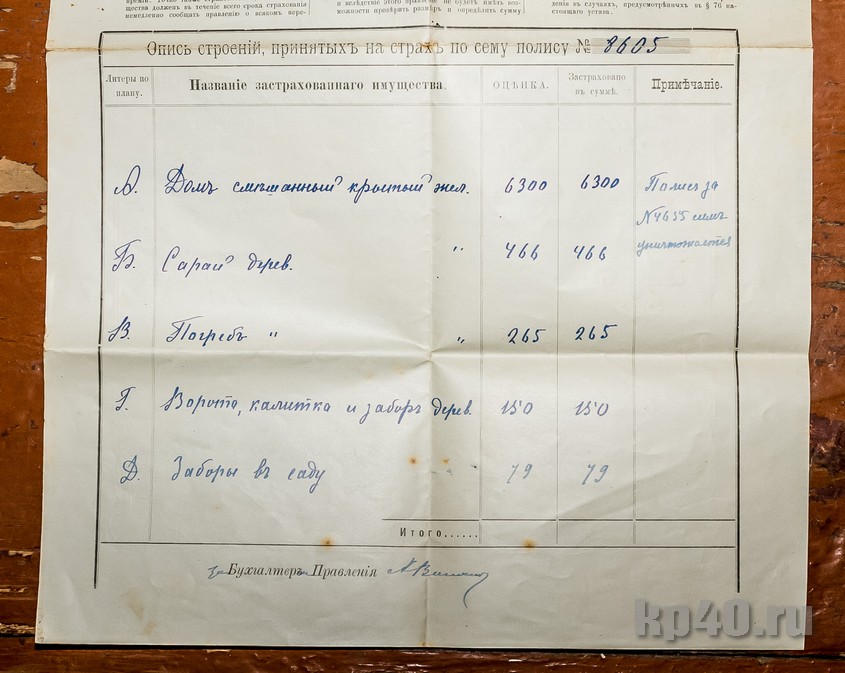 щества должен въ теченіе всего срока страхованія
немедленно сообщать правленію о всяком пере-
и вслѣдствіе этого правленіе не будетъ имѣть воз-
можности провѣрить размѣръ и опредѣлить сумму
денія въ случаяхъ, предусмотрѣнныхъ въ § 76 на-
стоящаго устава.
Опись строеній, принятыхъ на страхъ по сему полису № 8605
Литеры по плану.
Названіе застрахованнаго имущества.
ОЦѢНКА.
Застраховано въ суммѣ.
Примѣчаніе.
А. Домъ смѣшанный крытый жел. 6300 6300 Полисъ за
№ 4635 симъ
уничтожается
Б. Сарай дерев. " 466 466
В. Погребъ " " 265 265
Г. Ворота, калитка и заборъ дерев. 150 150
Д. Заборы въ саду " " 79 79
Итого......
за Бухгалтеръ Правленія
kp40.ru